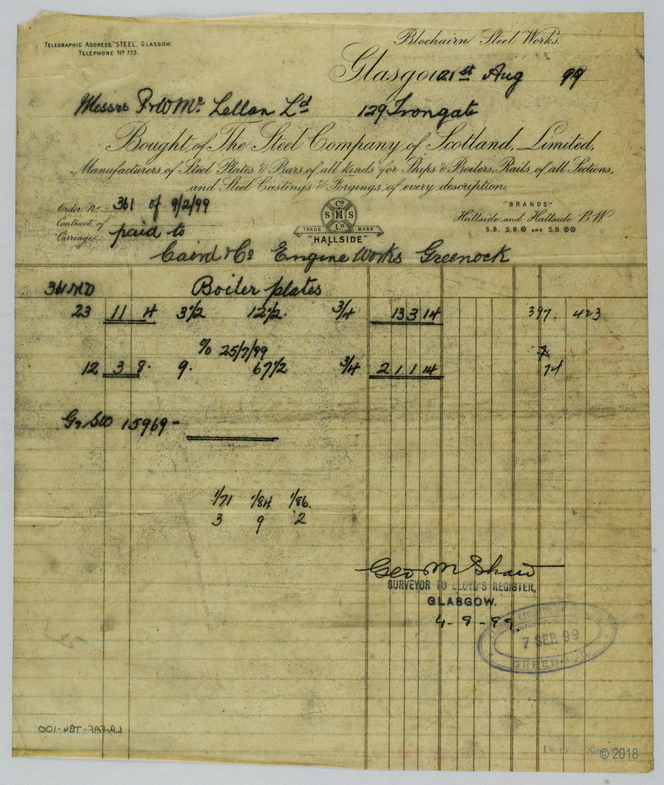 Blochairn Steel Works.
TELEGRAPHIC ADDRESS, "STEEL", GLASGOW
TELEPHONE Nº 773.
Glasgow 21st Aug 99
Messrs P & W Mc Lellan Ld 129 Trongate
Bought of The Steel Company of Scotland, Limited,
Manufacturers of Steel Plates & Bars, of all kinds for Ships & Boilers, Rails, of all Sections,
and Steel Castings & Forgings of every description.
Order No 361 of 9/2/99
Contract of
Carriage paid to
Co
S H S
Ld
TRADE MARK
"HALLSIDE"
"BRANDS"
Hallside and Hallside B.W
Caird & Co Engine Works Greenock
361 MD Boiler plates
23 11 4 3 1/2 12 1/2 3/4 13 3 14 397. 423
% 25/7/99
12 3 9. 9. 67 1/2 3/4 2 1 1 14 74
15969 -
1/71 1/84 1/86.
3 9 2
Geo M Shaw
SURVEYOR TO LLOYD'S REGISTER,
GLASGOW.
4-9-99.
7 SEP. 99
GREENOCK
LR-FAF-TB4-001
© 2018